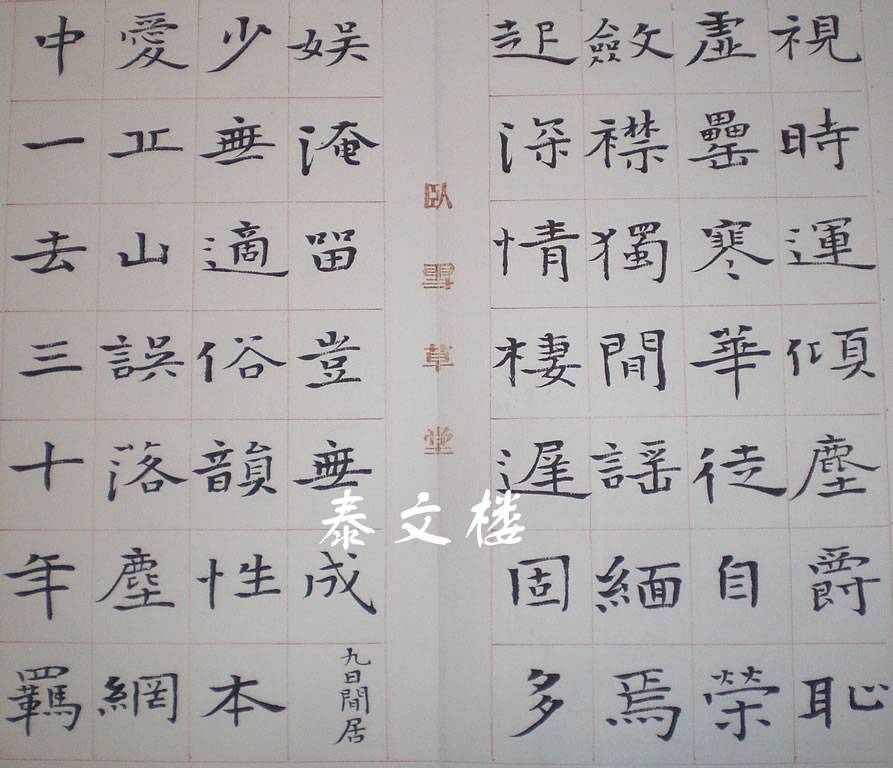 視時運傾塵爵恥
虛罍寒華徒自榮
斂襟獨間謠緬焉
起深情棲遲固多
臥雪草堂
娛淹留豈無成
九日間居
少無適俗韻性本
愛丘山誤落塵網
中一去三十年羈
泰文楼